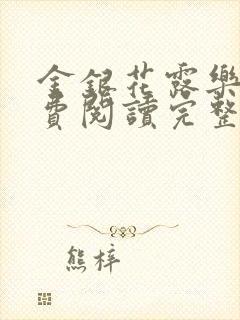 金銀花露樂
費閱讀完整
熊梓